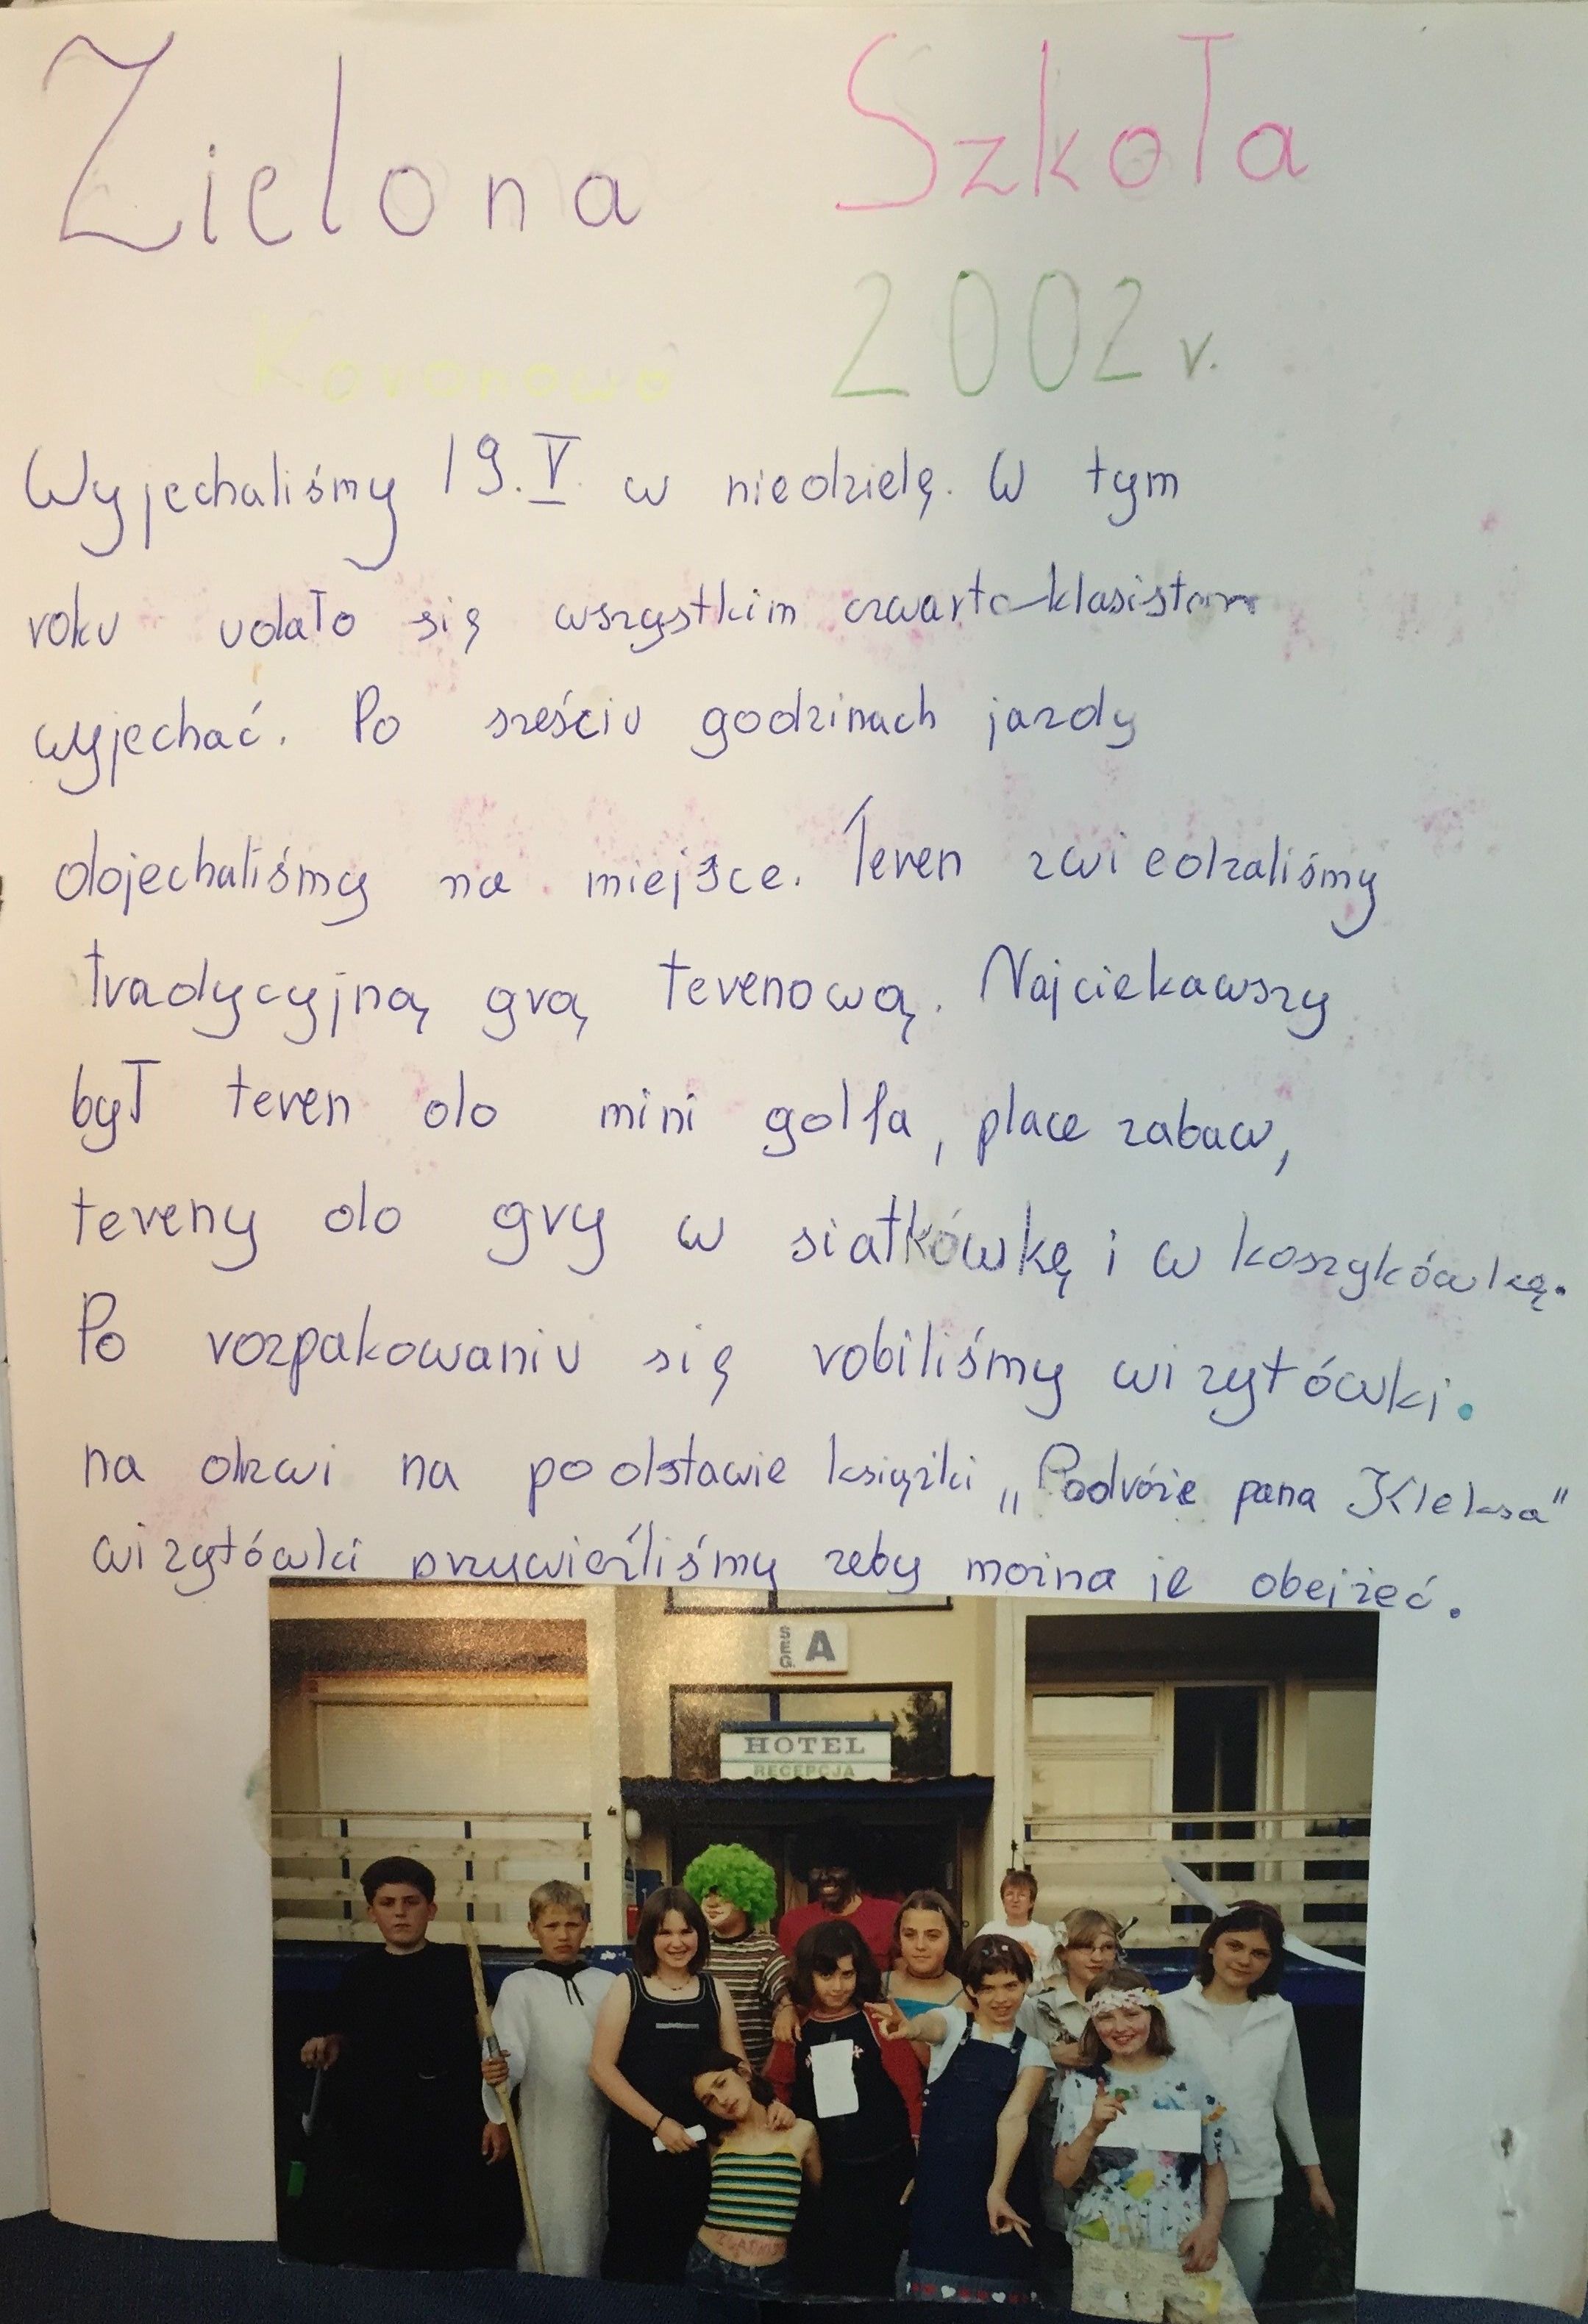 Zielona Szkoła
Koronowo 2002 r.
Wyjechaliśmy 19.V w niedzielę. W tym
roku udało się wszystkim czwarto-klasistom
wyjechać. Po sześciu godzinach jazdy
dojechaliśmy na miejsce. Teren zwiedzaliśmy
tradycyjną grą terenową. Najciekawszy
był teren do mini golfa, place zabaw,
tereny do gry w siatkówkę i w koszykówkę.
Po rozpakowaniu się robiliśmy wizytówki.
na drzwi na podstawie książki „Podróże pana Kleksa"
wizytówki przywieźliśmy zeby można je obejżeć.
SEG. A
HOTEL
RECEPCJA